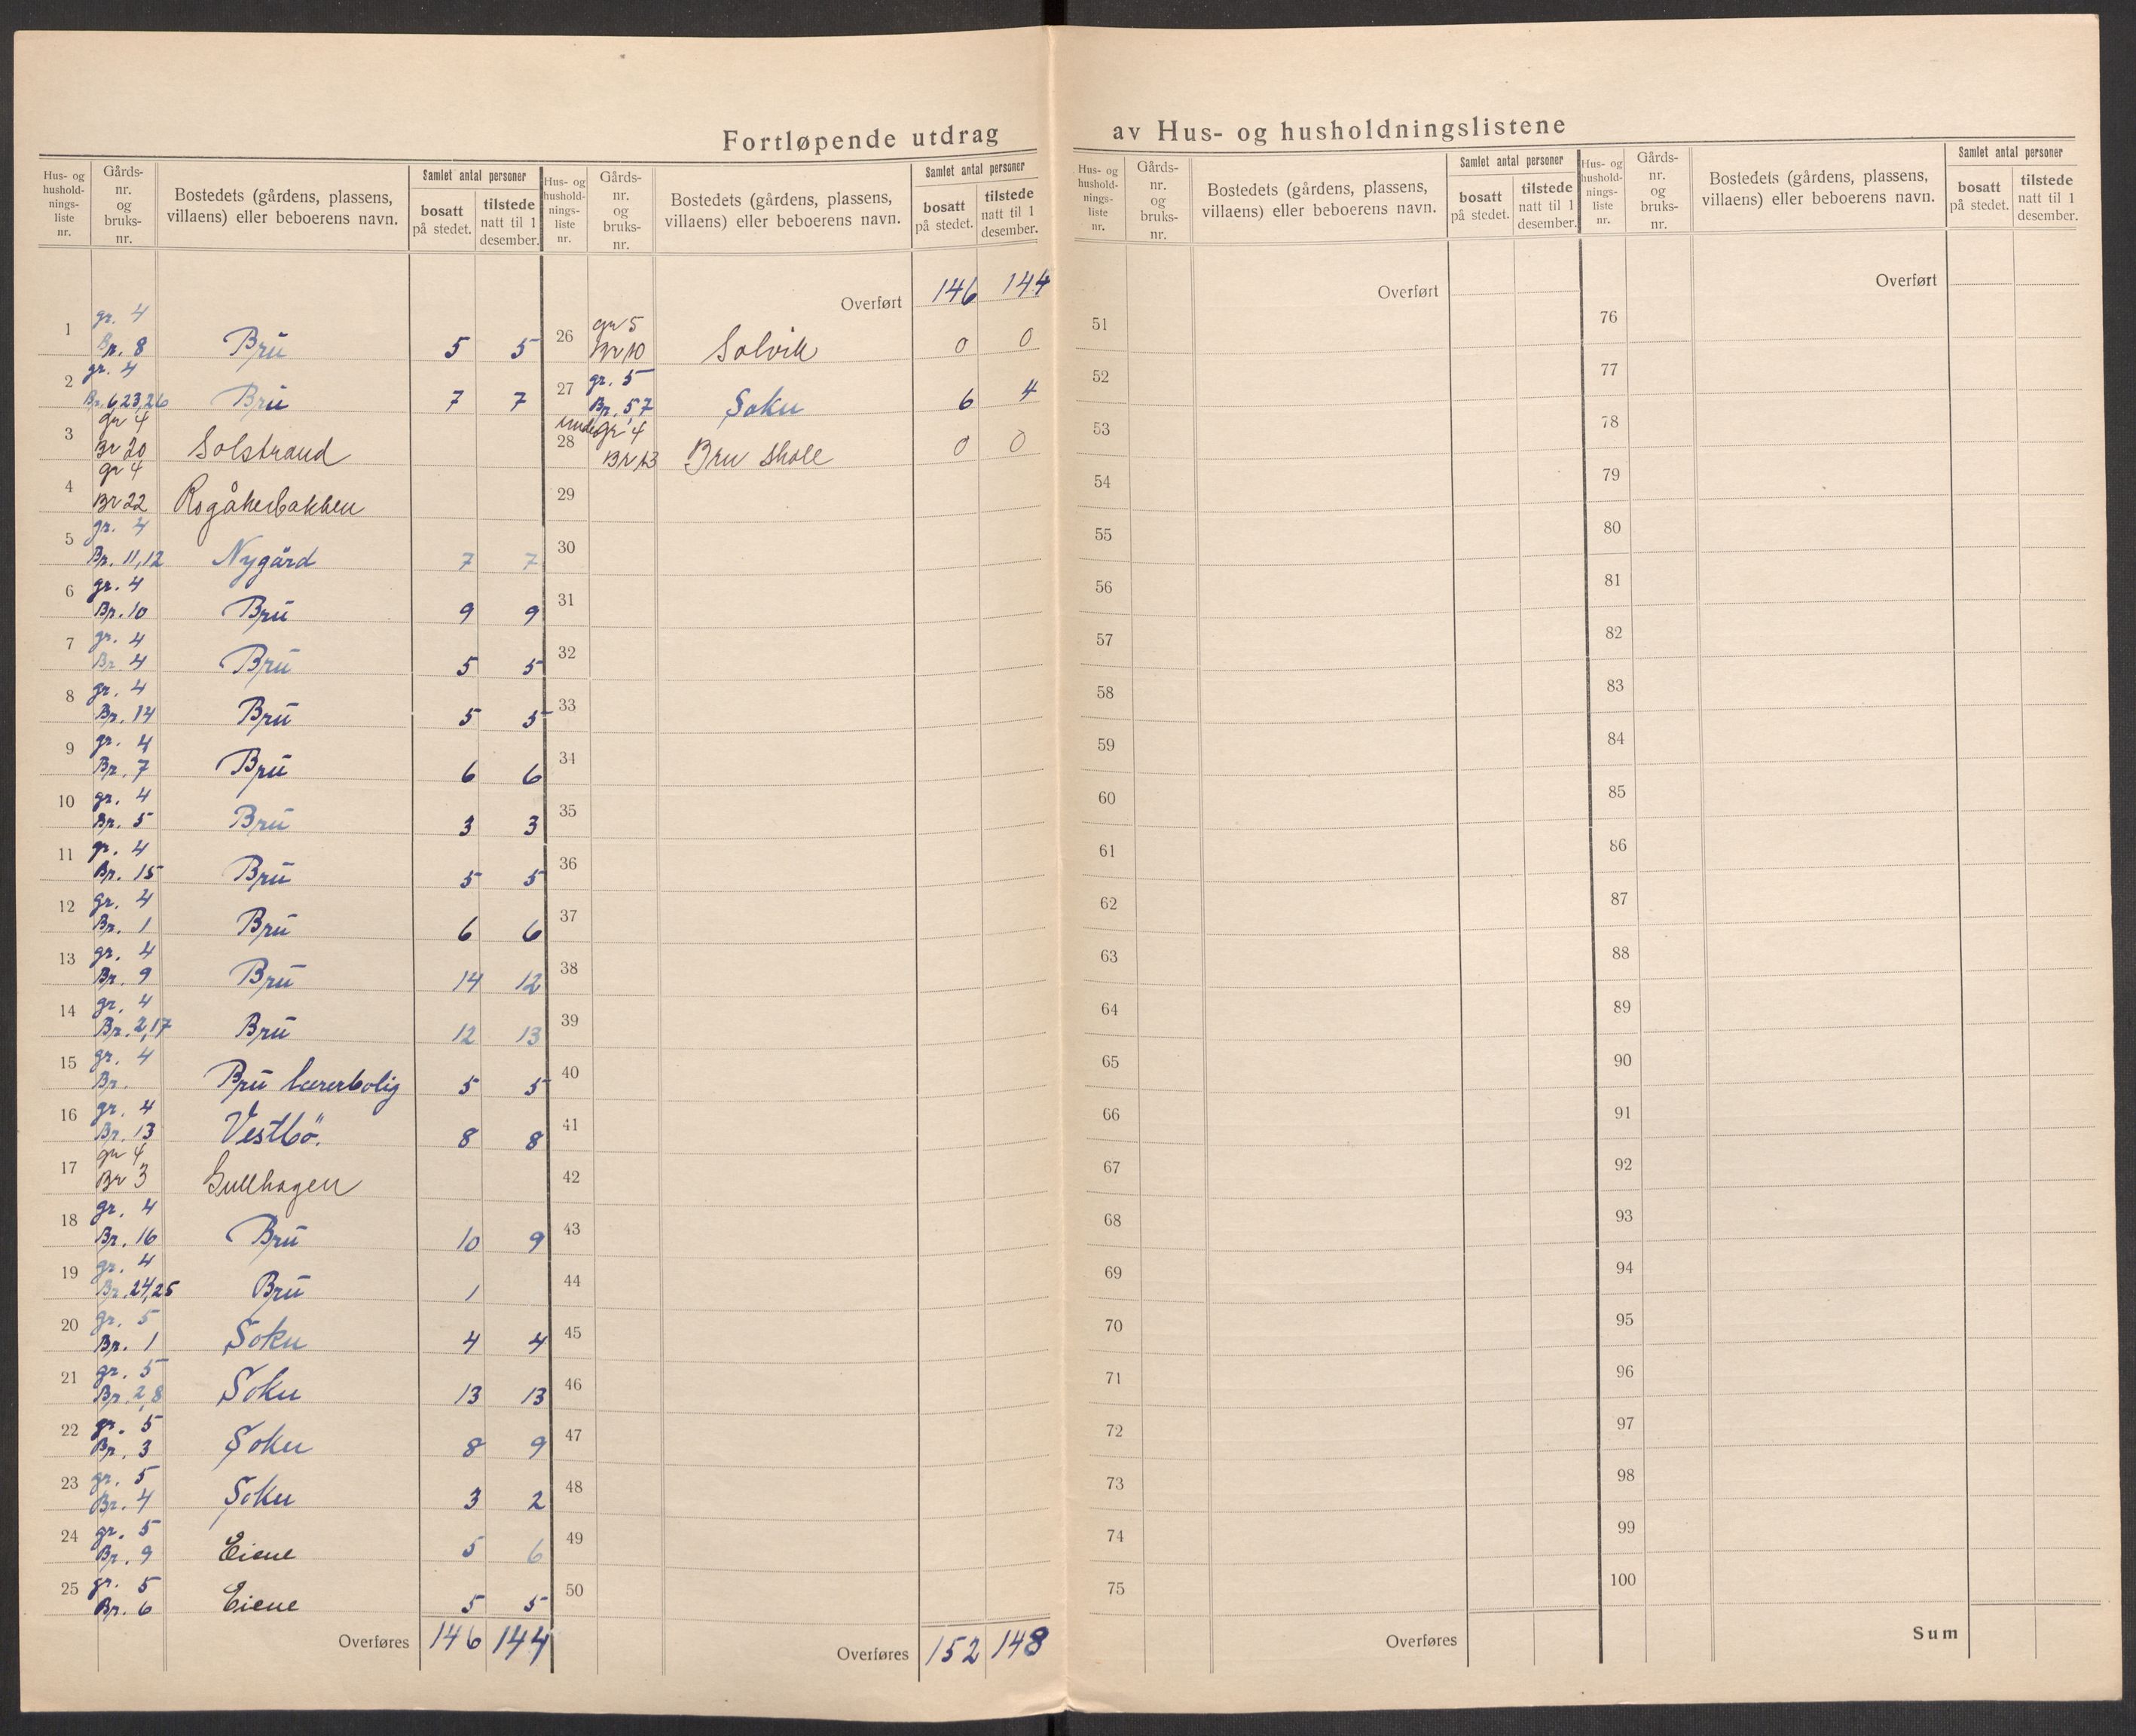 Fortløpende utdrag av Hus- og husholdningslistene
Hus- og hushold-nings-liste nr. | Gårds-nr. og bruks-nr. | Bostedets (gårdens, plassens, villaens) eller beboerens navn. | Samlet antal personer | bosatt på stedet. | tilstede natt til 1 desember.
1 gr. 4 Br. 8 Bru 5 5
2 gr. 4 Br. 6,23,26 Bru 7 7
3 gr 4 Br 20 Solstrand
4 gr 4 Br 22 Rogåkerbakken
5 gr. 4 Br. 11,12 Nygård 7 7
6 gr. 4 Br. 10 Bru 9 9
7 gr. 4 Br 4 Bru 5 5
8 gr. 4 Br. 14 Bru 5 5
9 gr. 4 Br. 7 Bru 6 6
10 gr. 4 Br. 5 Bru 3 3
11 gr. 4 Br. 15 Bru 5 5
12 gr. 4 Br. 1 Bru 6 6
13 gr. 4 Br. 9 Bru 14 12
14 gr. 4 Br. 2,17 Bru 12 13
15 gr. 4 Br. Bru lærerbolig 5 5
16 gr. 4 Br. 13 Vestbö. 8 8
17 gr 4 Br 3 Gullhagen
18 gr. 4 Br. 16 Bru 10 9
19 gr. 4 Br. 24,25 Bru 1
20 gr. 5 Br. 1 Soku 4 4
21 gr. 5 Br. 2,8 Soku 13 13
22 gr. 5 Br. 3 Soku 8 9
23 gr. 5 Br. 4 Soku 3 2
24 gr. 5 Br. 9 Eiene 5 6
25 gr. 5 Br. 6 Eiene 5 5
Overføres 146 144
Hus- og hushold-nings-liste nr. | Gårds-nr. og bruks-nr. | Bostedets (gårdens, plassens, villaens) eller beboerens navn. | Samlet antal personer | bosatt på stedet. | tilstede natt til 1 desember.
Overført 146 144
26 gr 5 Br 10 Solvik 0 0
27 gr. 5 Br. 5,7 Soku 6 4
28 under gr 4 Br 13 Bru skole 0 0
29
30
31
32
33
34
35
36
37
38
39
40
41
42
43
44
45
46
47
48
49
50
Overføres 152 148
Hus- og hushold-nings-liste nr. | Gårds-nr. og bruks-nr. | Bostedets (gårdens, plassens, villaens) eller beboerens navn. | Samlet antal personer | bosatt på stedet. | tilstede natt til 1 desember.
Overført
51
52
53
54
55
56
57
58
59
60
61
62
63
64
65
66
67
68
69
70
71
72
73
74
75
Overføres
Hus- og hushold-nings-liste nr. | Gårds-nr. og bruks-nr. | Bostedets (gårdens, plassens, villaens) eller beboerens navn. | Samlet antal personer | bosatt på stedet. | tilstede natt til 1 desember.
Overført
76
77
78
79
80
81
82
83
84
85
86
87
88
89
90
91
92
93
94
95
96
97
98
99
100
Sum